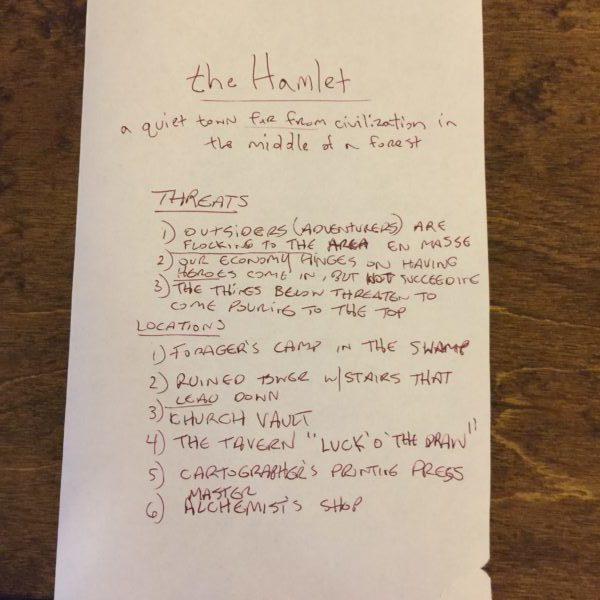 the Hamlet
a quiet town far from civilization in
the middle of a forest
THREATS
1) OUTSIDERS (ADVENTURERS) ARE
FLOCKING TO THE AREA EN MASSE
2) OUR ECONOMY HINGES ON HAVING
HEROES COME IN, BUT NOT SUCCEEDING
3) THE THINGS BELOW THREATEN TO
COME POURING TO THE TOP
LOCATIONS
1) FORAGER'S CAMP IN THE SWAMP
2) RUINED TOWER W/STAIRS THAT
LEAD DOWN
3) CHURCH VAULT
4) THE TAVERN "LUCK 'O' THE DRAW"
5) CARTOGRAPHER'S PRINTING PRESS
MASTER
6) ALCHEMIST'S SHOP